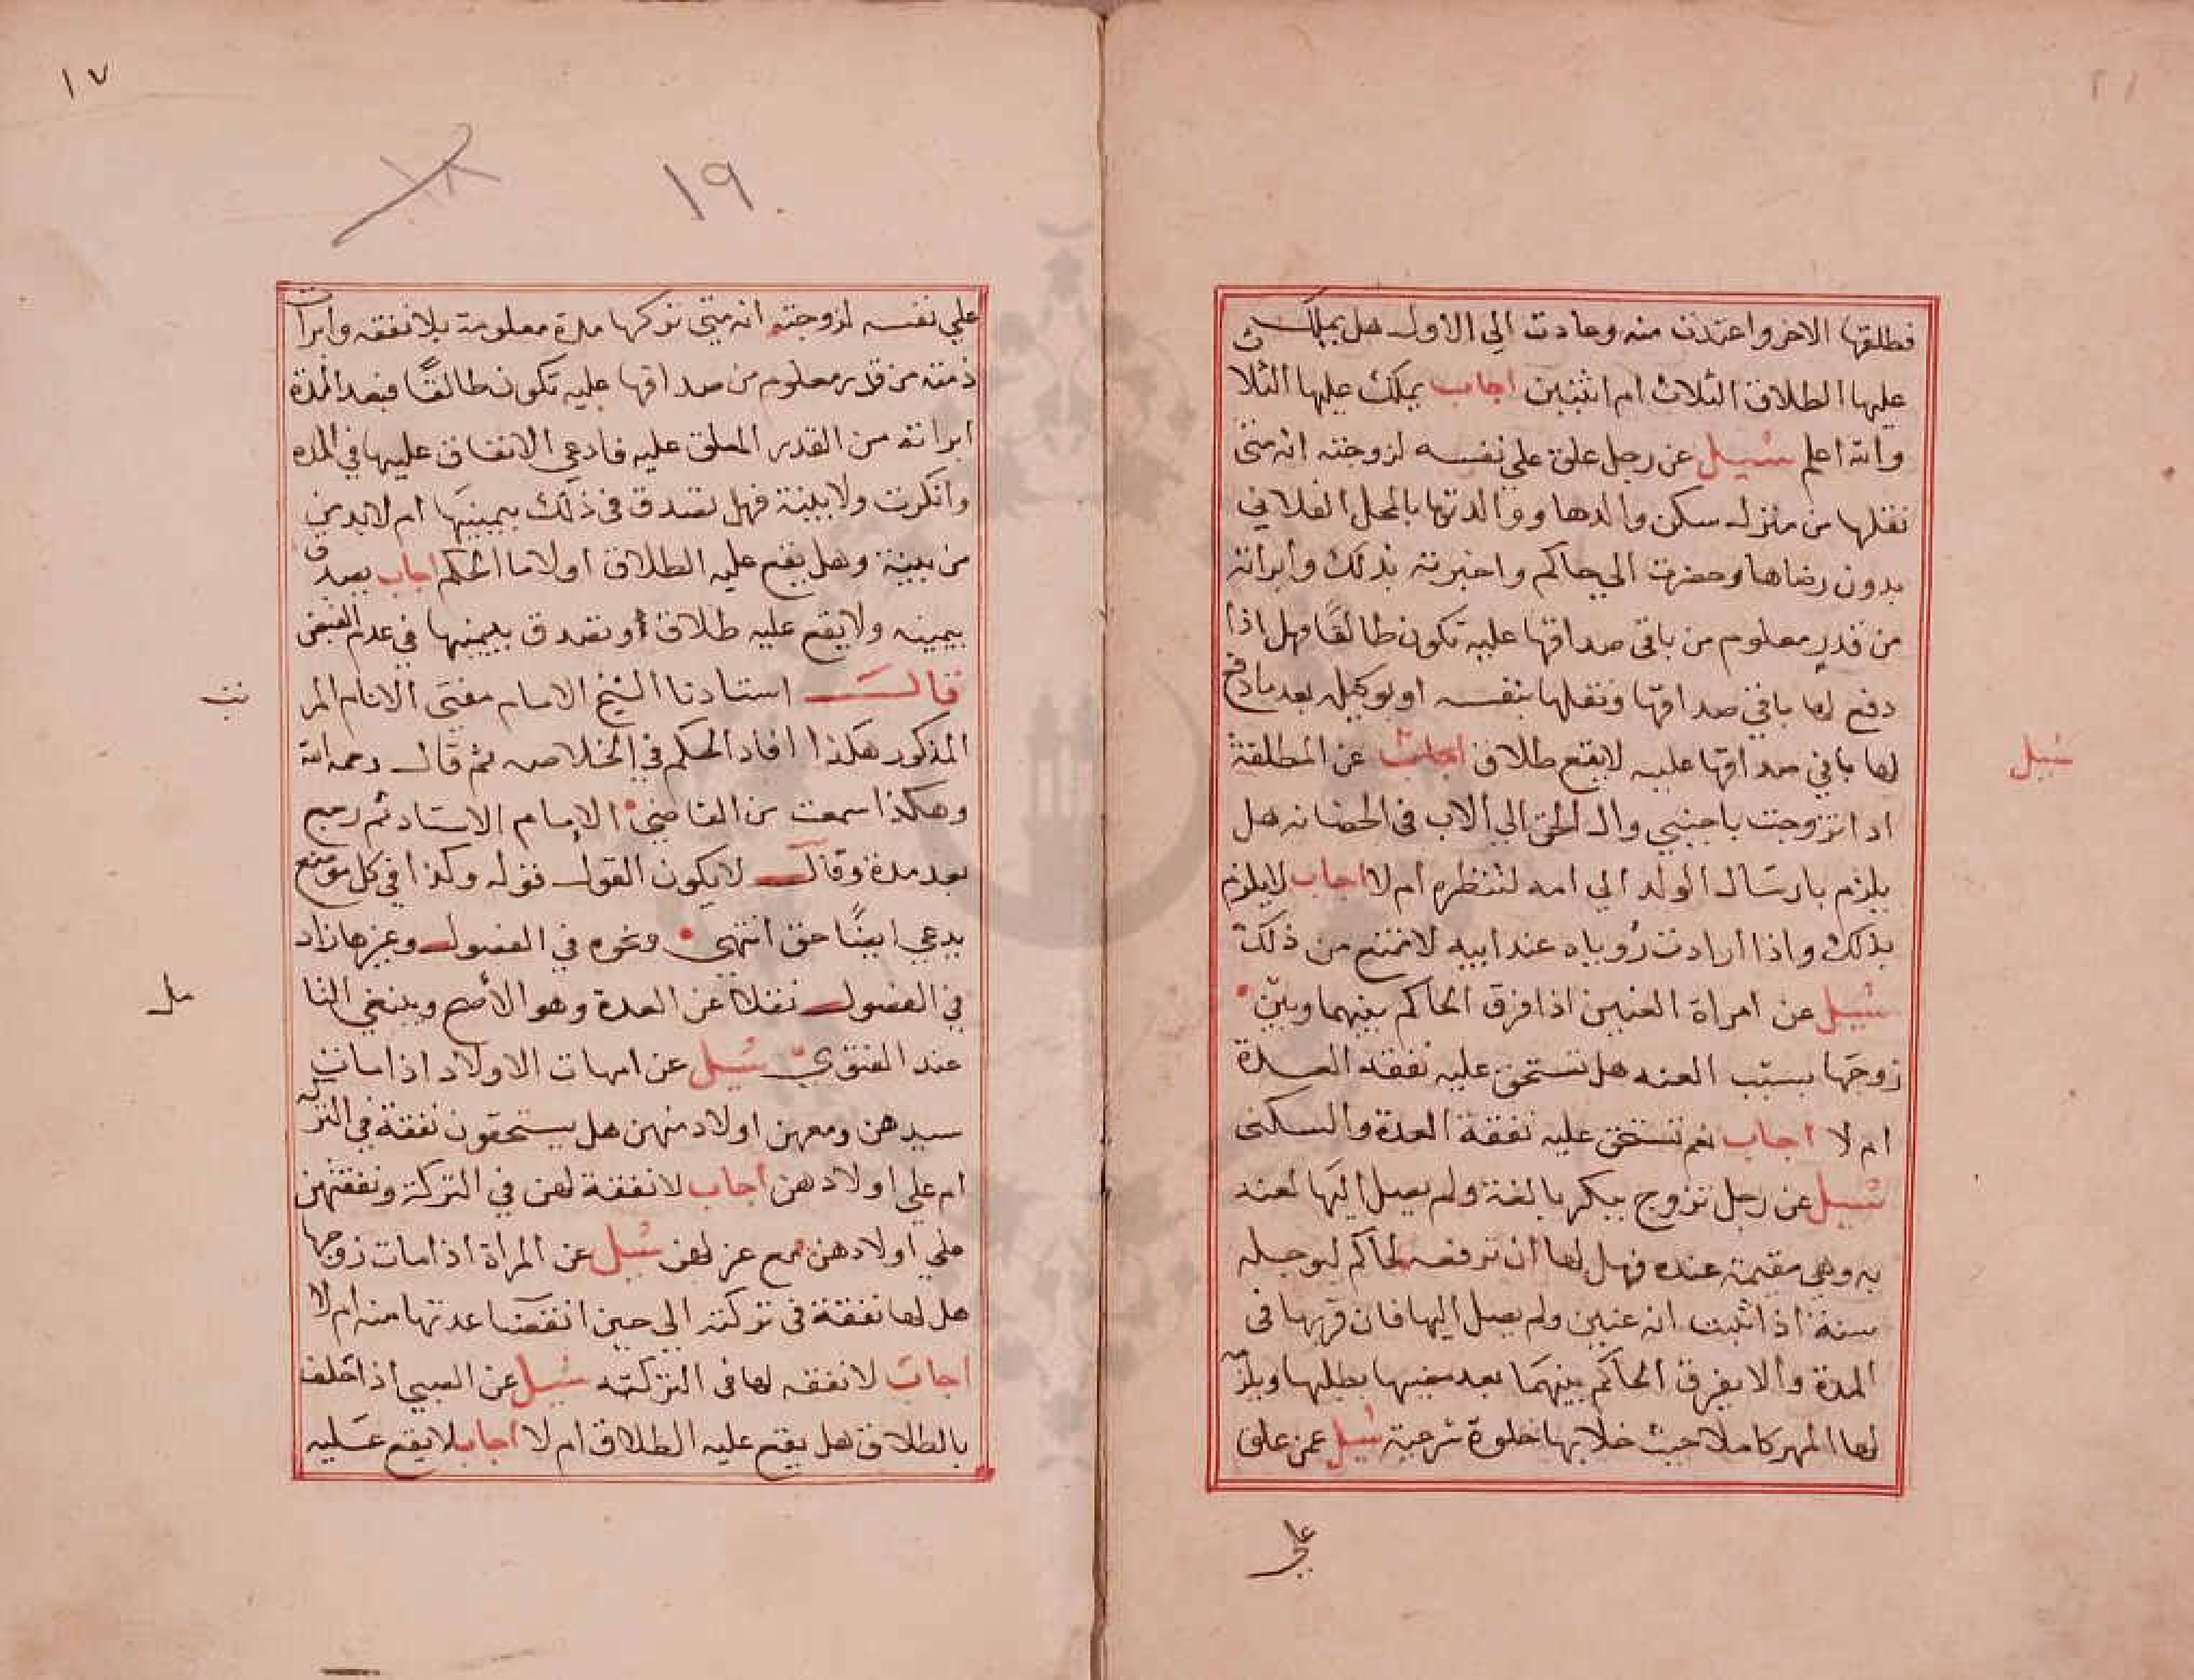 فطلقها الاخر واعتدت منه وعادت الي الاول هل يملك
عليها الطلاق الثلاث ام اثنتين اجاب يملك عليها الثلاث
والله اعلم سيل عن رجل علق علي نفسه لزوجته انه متي
نقلها من منزل سكن والدها ووالدتها بالمحل الفلاني
بدون رضاها وحضرت الي حاكم واخبرته بذلك وابراته
من قدر معلوم من باقي صداقها عليه تكون طالقًا فهل اذا
دفع لها باقي صداقها ونقلها بنفسه او بوكيله بعد ما دفع
لها باقي صداقها عليه لا يقع طلاق اجاب عن المطلقة
سيل
اذا تزوجت باجنبي وال الحق الي الاب في الحضانه هل
يلزم بارسال الولد الي امه لتنظره ام لا اجاب لا يلزم
بذلك واذا ارادت رُوياه عند ابيه لا تمنع من ذلك
سيل عن امراة العنين اذا فرق الحاكم بينهما وبين
زوجها بسبب العنه هل تستحق عليه نفقه العدة
ام لا اجاب نعم تستحق عليه نفقة العدة والسكني
سيل عن رجل تزوج ببكر بالغة ولم يصل اليها لعنه
به وهي مقيمة عنده فهل لها ان ترفعه لحاكم ليوجله
سنة اذا ثبت انه عنين ولم يصل اليها فان قربها في
المدة والا يفرق الحاكم بينهما بعد مضيها بطلبها ويلزم
لها المهر كاملا حيث خلا بها خلوة شرعية سيل عمن علق
علي
١٧
١٩
علي نفسه لزوجته انه متي تركها مدة معلومة بلا نفقه وابرات
ذمته من قدر معلوم من صداقها عليه تكون طالقًا فبعد المدة
ابراته من القدر المعلق عليه فادعي الانفاق عليها في المده
وانكرت ولا بينة فهل تصدق في ذلك بيمينها ام لا بد من
من بينة وهل يقع عليه الطلاق اولا ما الحكم اجاب يصدق
بيمينه ولا يقع عليه طلاق أو تصدق بيمينها في عدم القبض
قال استادنا الشيخ الامام مفتي الانام المر
المذكور هكذا افاد الحكم في الخلاصه ثم قال رحمه الله
وهكذا سمعت من القاضي الامام الاستاد ثم رجع
بعد مدة وقال لا يكون القول قوله وكذا في كل موضع
يدعي ايضًا حق انتهي ونحوه في الفصول وغيرها زاد
في الفصول نقلا عن العدة وهو الأصح وينبغي التا
عند الفتوي سيل عن امهات الاولاد اذا مات
سيدهن ومعهن اولاد منهن هل يستحقون نفقة في التركه
ام علي اولادهن اجاب لا نفقة لهن في التركة ونفقتهن
علي اولادهن مع عزلهن سيل عن المراة اذا مات زوجها
هل لها نفقة في تركته الي حين انقضا عدتها منه ام لا
اجاب لا نفقه لها في التركته سيل عن الصبي اذا حلف
بالطلاق هل يقع عليه الطلاق ام لا اجاب لا يقع عليه